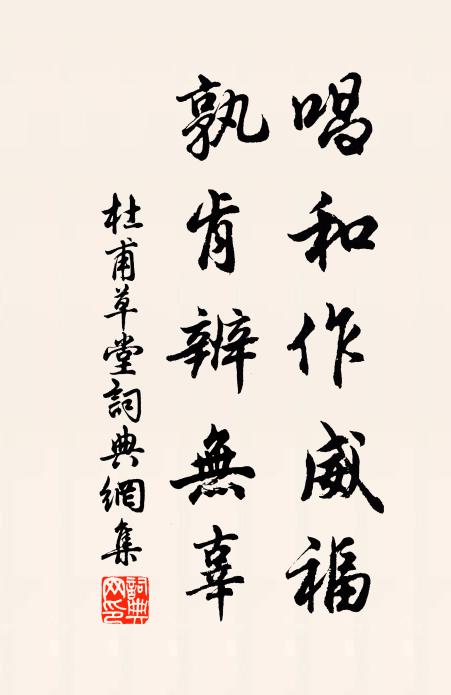 唱和作威福
孰肯辨無辜
杜甫草堂詞典網集
詞典網印